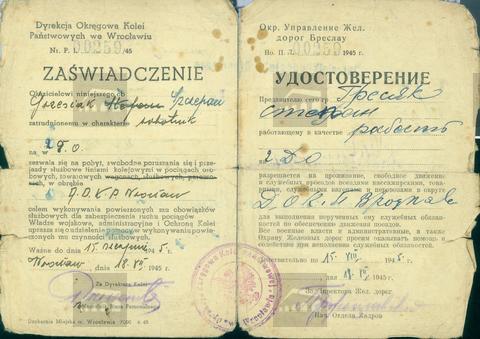 Dyrekcja Okręgowa Kolei
Państwowych we Wrocławiu
Nr. P. I. 00259/45
ZAŚWIADCZENIE
Okaziciel niniejszego ob.
Grzesiak Stefan Szczepan
zatrudnionemu w charakterze robotnik
na 2 D.O.
zezwala się na pobyt, swobodne poruszanie się i prze-
jazdy liniami kolejowymi w pociągach oso-
bowych, towarowych
w obrębie
D.O.K.P. Wrocław
celem wykonywania powierzonych mu obowiązków
służbowych dla zabezpieczenia ruchu pociągów
Władze wojskowe, administracyjne i Ochronę Kolei
uprasza się o udzielenie pomocy w wykonywaniu powie-
rzonych mu czynności służbowych.
Ważne do dnia 15 sierpnia 1945 r.
Wrocław, dnia 18. VII 1945 r.
Za Dyrektora Kolei
Drukarnia Miejska m. Wrocławia
Окр. Управление Жел.
дорог Бреслау
Но П. 00259 1945 г.
УДОСТОВЕРЕНИЕ
Предъявителю сего гр. Гресяк
Стефан
работающему в качестве работъ
на 2 Д О
разрешается на проживание, свободное движение
и служебных вагонах и паровозах в округе
Д. О К. П Вроцлав
для выполнения порученных ему служебных обязанностей
по обеспечению движения поездов.
Все военные власти и административные, а также
Охрану Железных дорог просим оказывать помощь и
содействие при исполнении служебных обязанностей.
Действительно по 15. VIII 1945 г.
18. VII 1945 г.
Директора Жел. дорог
Нач. Отдела Кадров